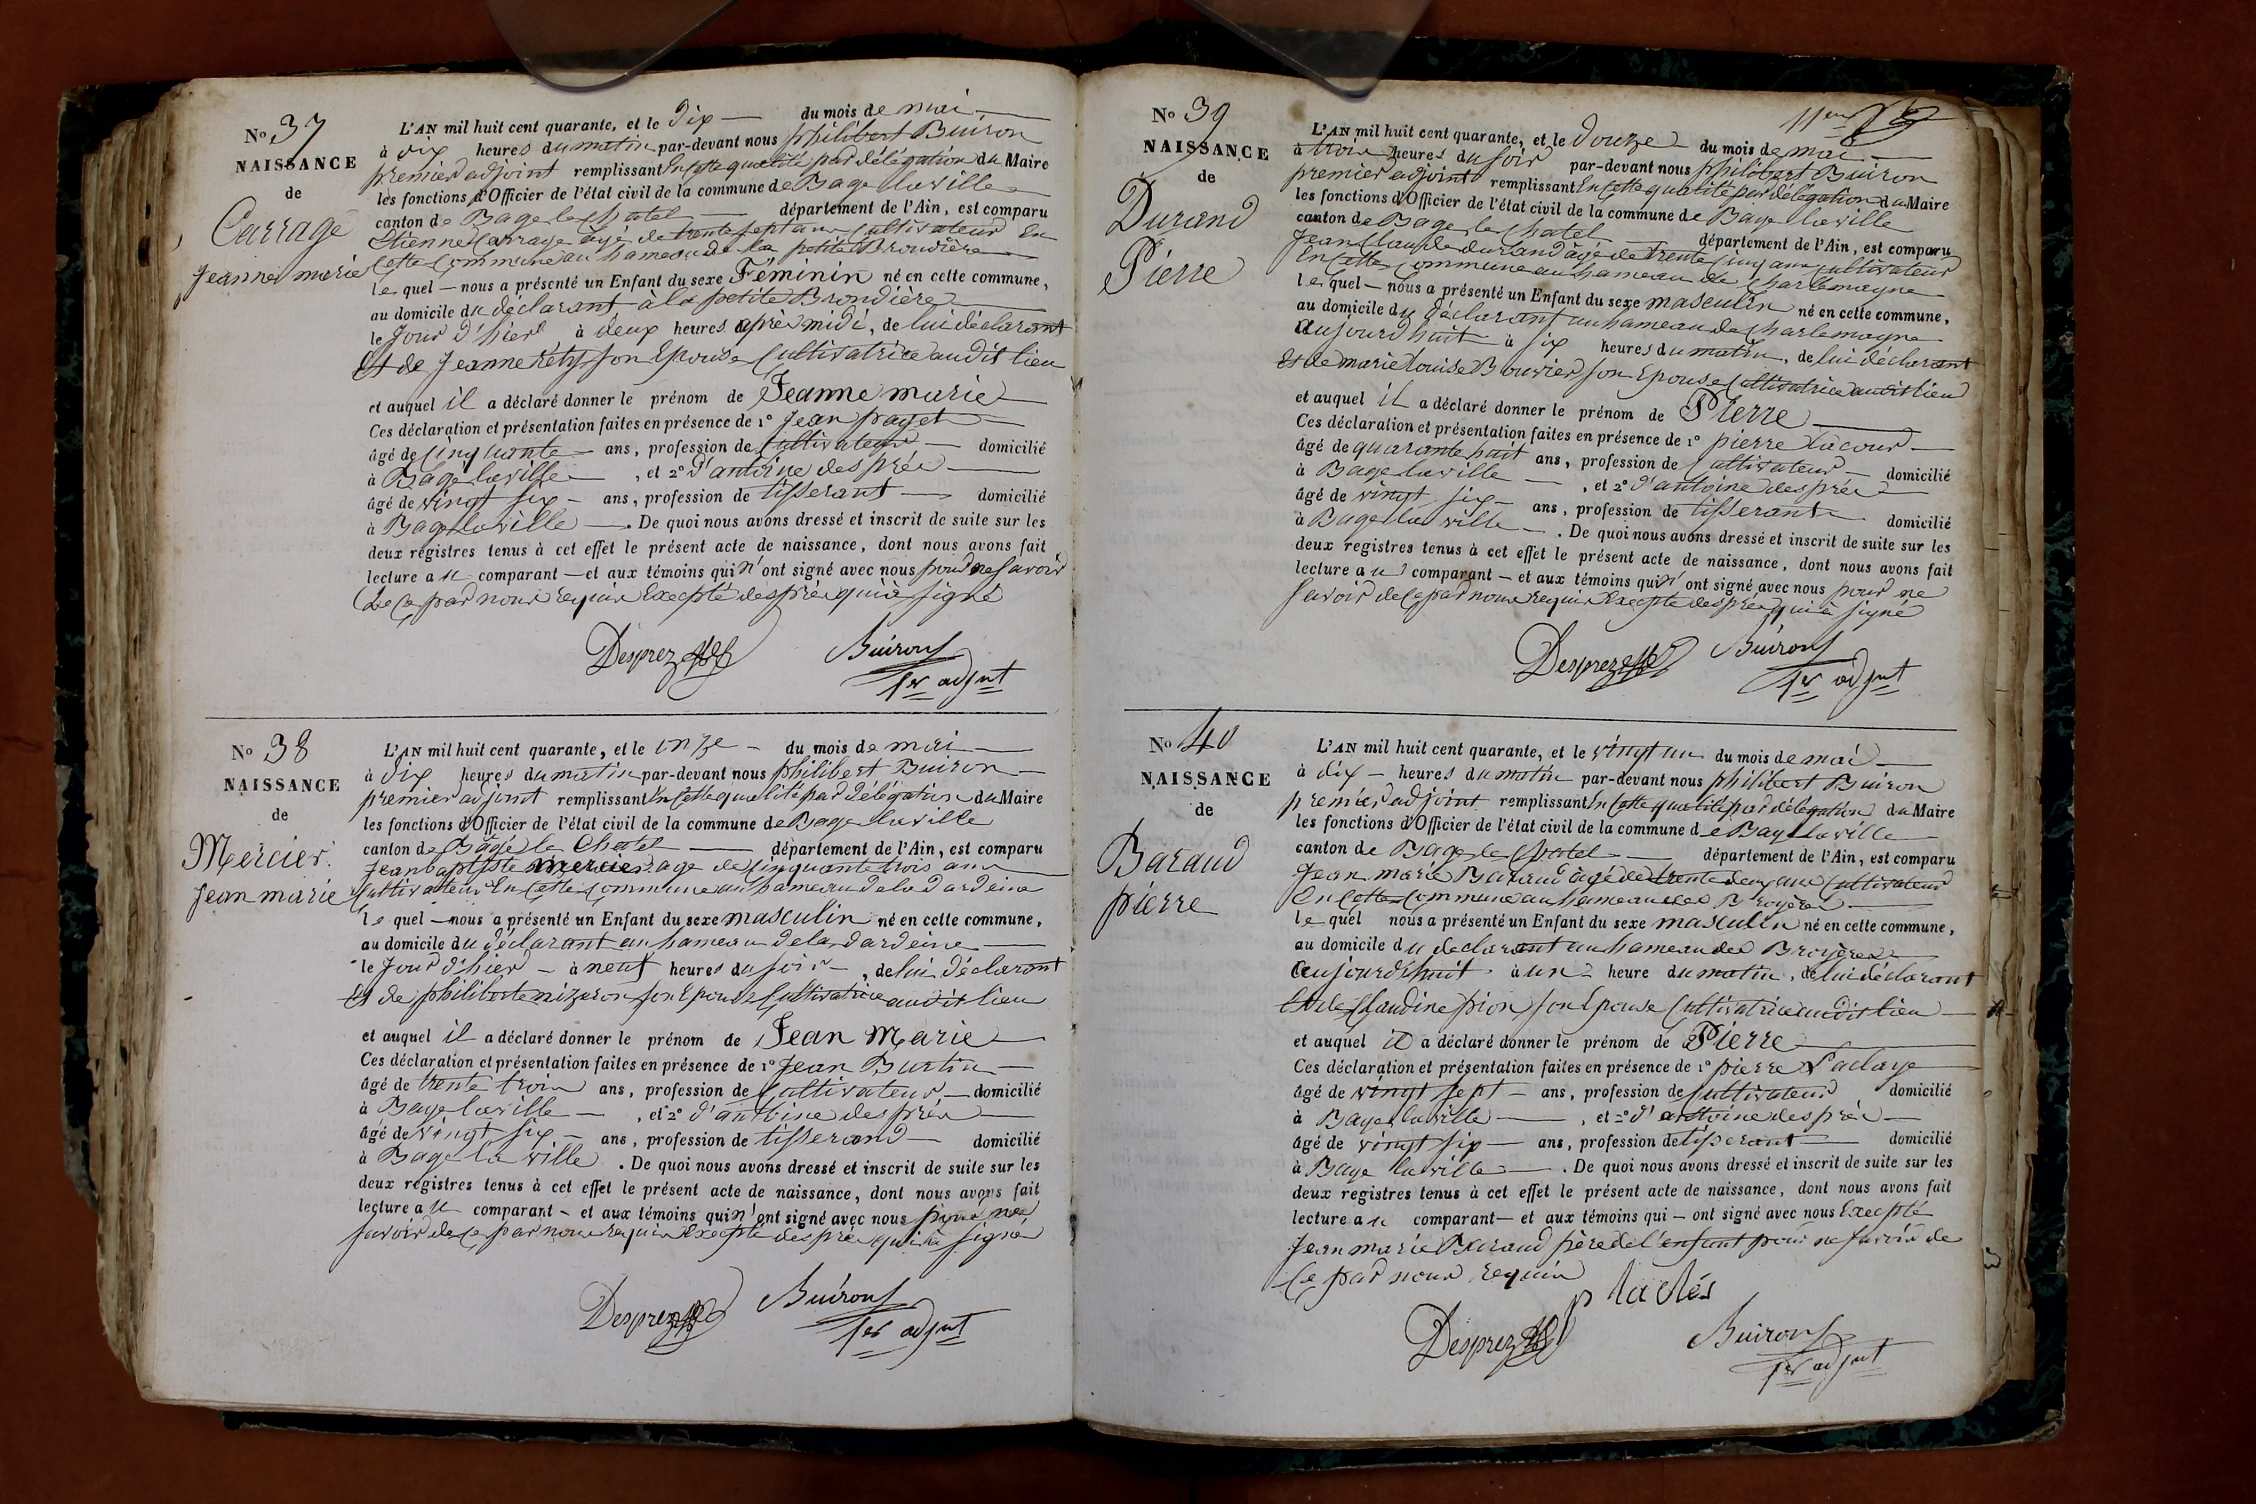 No 37
NAISSANCE
de
Carrage
Jeanne marie
L'AN mil huit cent quarante, et le dix du mois de mai
à dix heures du matin par-devant nous philibert Buiron
premier adjoint remplissant En Cette qualité par délégation du Maire
les fonctions d'Officier de l'état civil de la commune de Bage la ville
canton de Bage le Chatel département de l'Ain, est comparu
Etienne Carrage âgé de trente sept ans Cultivateur En
Cette Commune au hameau de la petite Brondière
le quel nous a présenté un Enfant du sexe Féminin né en cette commune,
au domicile du déclarant à la petite Brondière
le Jour d'hier à deux heures après midi, de lui déclarant
Et de Jeanne son Epouse Cultivatrice audit lieu
et auquel il a déclaré donner le prénom de Jeanne marie
Ces déclaration et présentation faites en présence de 1º Jean payet
âgé de Cinquante ans, profession de Cultivateur domicilié
à Bage la ville, et 2º d'antoine desprée
âgé de vingt six ans, profession de tisserant domicilié
à Bage la ville. De quoi nous avons dressé et inscrit de suite sur les
deux registres tenus à cet effet le présent acte de naissance, dont nous avons fait
lecture au comparant et aux témoins qui n'ont signé avec nous pour ne savoir
de Ce par nous requis Excepté desprée qui à signé
Desprez
Buiron
1er adjnt
No 38
NAISSANCE
de
Mercier
Jean marie
L'AN mil huit cent quarante, et le onze du mois de mai
à dix heures du matin par-devant nous philibert Buiron
premier adjoint remplissant En Cette qualité par délégation du Maire
les fonctions d'Officier de l'état civil de la commune de Bage la ville
canton de Bage le Chatel département de l'Ain, est comparu
Jean baptiste mercier age de Cinquante trois ans
Cultivateur En Cette Commune au hameau de la dardeine
le quel nous a présenté un Enfant du sexe masculin né en cette commune,
au domicile du déclarant au hameau de la dardeine
le Jour d'hier à neuf heures du soir, de lui déclarant
Et de philiberte nizeron son Epouse Cultivatrice audit lieu
et auquel il a déclaré donner le prénom de Jean Marie
Ces déclaration et présentation faites en présence de 1º Jean Burtin
âgé de trente trois ans, profession de Cultivateur domicilié
à Bage la ville, et 2º d'antoine desprée
âgé de vingt six ans, profession de tisserand domicilié
à Bage la ville. De quoi nous avons dressé et inscrit de suite sur les
deux registres tenus à cet effet le présent acte de naissance, dont nous avons fait
lecture au comparant et aux témoins qui n'ont signé avec nous ne
savoir de Ce par nous requis Excepté desprée qui à signé
Desprez
Buiron
1er adjnt
No 39
NAISSANCE
de
Durand
Pierre
L'AN mil huit cent quarante, et le douze du mois de mai
à trois heures du soir par-devant nous philibert Buiron
premier adjoint remplissant En Cette qualité par délégation du Maire
les fonctions d'Officier de l'état civil de la commune de Bage la ville
canton de Bage le Chatel département de l'Ain, est comparu
Jean Claude durand âgé de trente Cinq ans Cultivateur
En Cette Commune au hameau de Charlemagne
le quel nous a présenté un Enfant du sexe masculin né en cette commune,
au domicile du déclarant au hameau de Charlemagne
aujourdhuit à six heures du matin, de lui déclarant
Et de marie Louise Bouvier son Epouse Cultivatrice audit lieu
et auquel il a déclaré donner le prénom de Pierre
Ces déclaration et présentation faites en présence de 1º pierre Lacour
âgé de quarante huit ans, profession de Cultivateur domicilié
à Bage la ville, et 2º d'antoine desprée
âgé de vingt six ans, profession de tisserant domicilié
à Bage la ville. De quoi nous avons dressé et inscrit de suite sur les
deux registres tenus à cet effet le présent acte de naissance, dont nous avons fait
lecture au comparant et aux témoins qui n'ont signé avec nous pour ne
savoir de Ce par nous requis Excepté desprée qui à signé
Desprez
Buiron
1er adjnt
No 40
NAISSANCE
de
Baraud
pierre
L'AN mil huit cent quarante, et le vingt un du mois de mai
à dix heures du matin par-devant nous philibert Buiron
premier adjoint remplissant En Cette qualité par délégation du Maire
les fonctions d'Officier de l'état civil de la commune de Bage la ville
canton de Bage le Chatel département de l'Ain, est comparu
Jean marie Baraud âgé de trente deux ans Cultivateur
En Cette Commune au hameau des Broyères
le quel nous a présenté un Enfant du sexe masculin né en cette commune,
au domicile du declarant au hameau des Broyères
aujourd'huit à un heure du matin, de lui déclarant
Et de Claudine pion son Epouse Cultivatrice audit lieu
et auquel il a déclaré donner le prénom de Pierre
Ces déclaration et présentation faites en présence de 1º pierre Laclaye
âgé de vingt sept ans, profession de Cultivateur domicilié
à Bage la ville, et 2º d'antoine desprée
âgé de vingt six ans, profession de tisserant domicilié
à Bage la ville. De quoi nous avons dressé et inscrit de suite sur les
deux registres tenus à cet effet le présent acte de naissance, dont nous avons fait
lecture au comparant et aux témoins qui ont signé avec nous Excepté
Jean marie Baraud père de l'enfant pour ne savoir de
Ce par nous requis
p laclés
Desprez
Buiron
1er adjnt